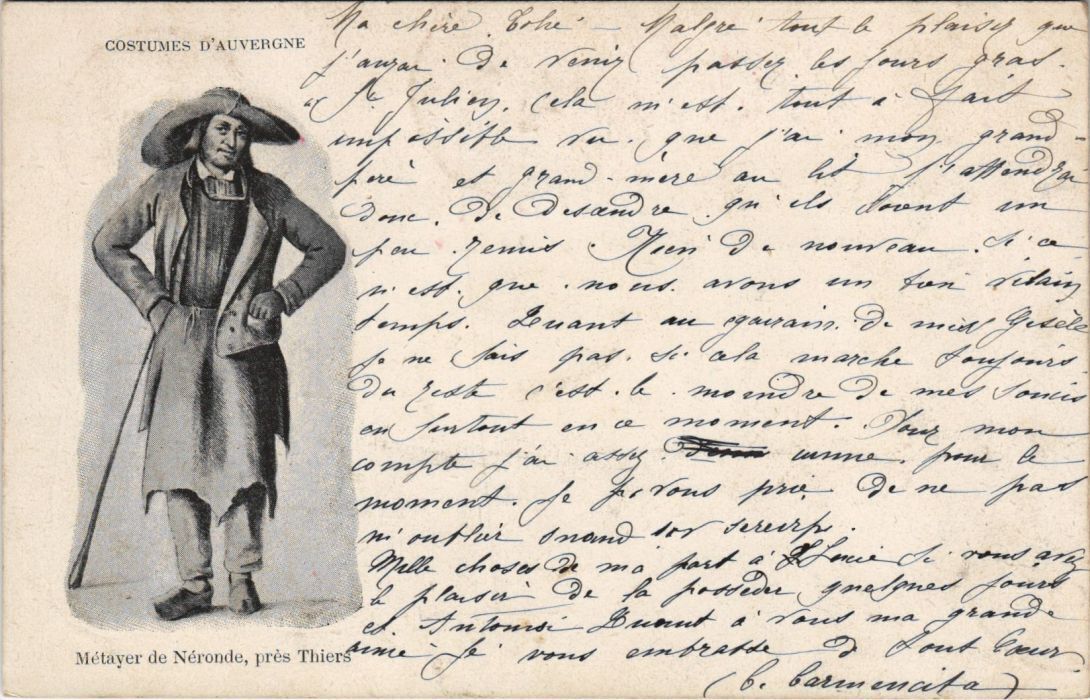 COSTUMES D'AUVERGNE
Ma chère Tolié – Malgré tout le plaisir que
j'aurai de venir passer les jours gras
à St Julien, cela n'est tout à fait
impossible vu que j'ai mon grand
père et grand-mère au lit j'attendrai
donc de descendre qu'ils soient un
peu remis Rien de nouveau si ce
n'est que nous avons un bien vilain
temps. Quant au de miss Gisèle
je ne sais pas si cela marche toujours
du reste c'est le moindre de mes soucis
surtout en ce moment. Pour mon
compte j'ai assez pour le
moment. Je vous prie de ne pas
m'oublier
Mille choses de ma part à Lucie si vous avez
le plaisir de la posséder quelques jours
et Quant à vous ma grande
amie je vous embrasse de tout cœur
Carmencita
Métayer de Néronde, près Thiers